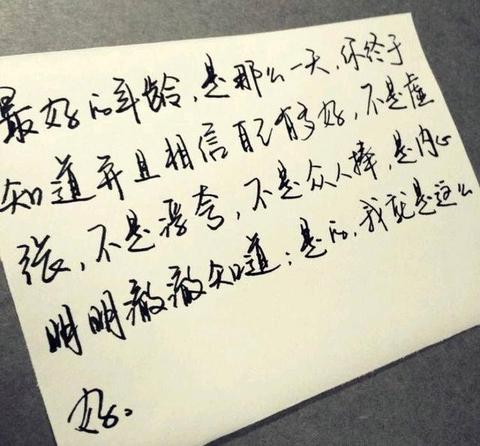 最好的年龄，是那么一天，你终于
知道并且相信自己有多好，不是虚
张，不是浮夸，不是众人捧，是内心
明明澈澈知道：是的，我就是这么
好。